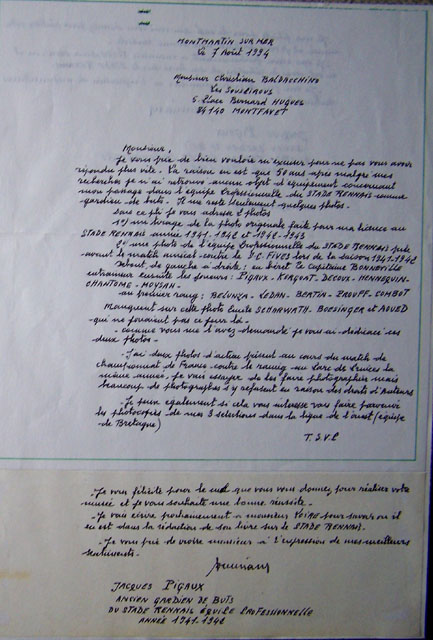 MONTMARTIN SUR MER
Le 7 Août 1994
Monsieur Christian BALDACCHINO
Les Souspirous
5 Place Bernard HUGUES
84140 MONTFAVET
Monsieur,
Je vous prie de bien vouloir m'excuser pour ne pas vous avoir
répondu plus vite. La raison en est que 50 ans après malgré mes
recherches je n'ai retrouvé aucun objet d'équipement concernant
mon passage dans l'équipe Professionnelle du STADE RENNAIS comme
gardien de buts. Il me reste seulement quelques photos.
Sous ce pli je vous adresse 2 photos
1°) un tirage de la photo originale faite pour ma licence au
STADE RENNAIS année 1941-1942 et 1942-1943
2°) une photo de l'équipe Professionnelle du STADE RENNAIS prise
avant le match amical contre le S.C. FIVES lors de la saison 1941-1942
Debout, de gauche à droite: en béret le Capitaine BONNEVILLE
entraineur ensuite les joueurs: PIGAUX - KERGOAT - DECOUX - HENNEQUIN -
CHANTOME - MOYSAN -
au premier rang: BELUNZA - LEDAN - BERTIN - PROUFF - COMBOT
Manquent sur cette photo Emile SCHARWATH - BOESINGER et AOUED
qui ne jouaient pas ce jour là -
- comme vous me l'avez demandé je vous ai dédicacé ces
deux photos -
- J'ai deux photos d'action prises au cours du match de
championnat de France contre le racing au Parc des Princes la
même année. Je vais essayer de les faire photographier mais
beaucoup de photographes s'y refusent en raison des droits d'Auteurs
- Je peux également si cela vous intéresse vous faire parvenir
les photocopies de mes 3 sélections dans la ligue de l'ouest (équipe
de Bretagne)
T.S.V.P
- Je vous félicite pour le mal que vous vous donnez pour réaliser votre
musée et je vous souhaite une bonne réussite -
- Je vais écrire prochainement à monsieur pour savoir où il
en est dans la rédaction de son livre sur le STADE RENNAIS.
- Je vous prie de croire monsieur à l'expression de mes meilleurs
sentiments -
JACQUES PIGAUX
ANCIEN GARDIEN DE BUTS
DU STADE RENNAIS EQUIPE PROFESSIONNELLE
ANNÉE 1941-1942